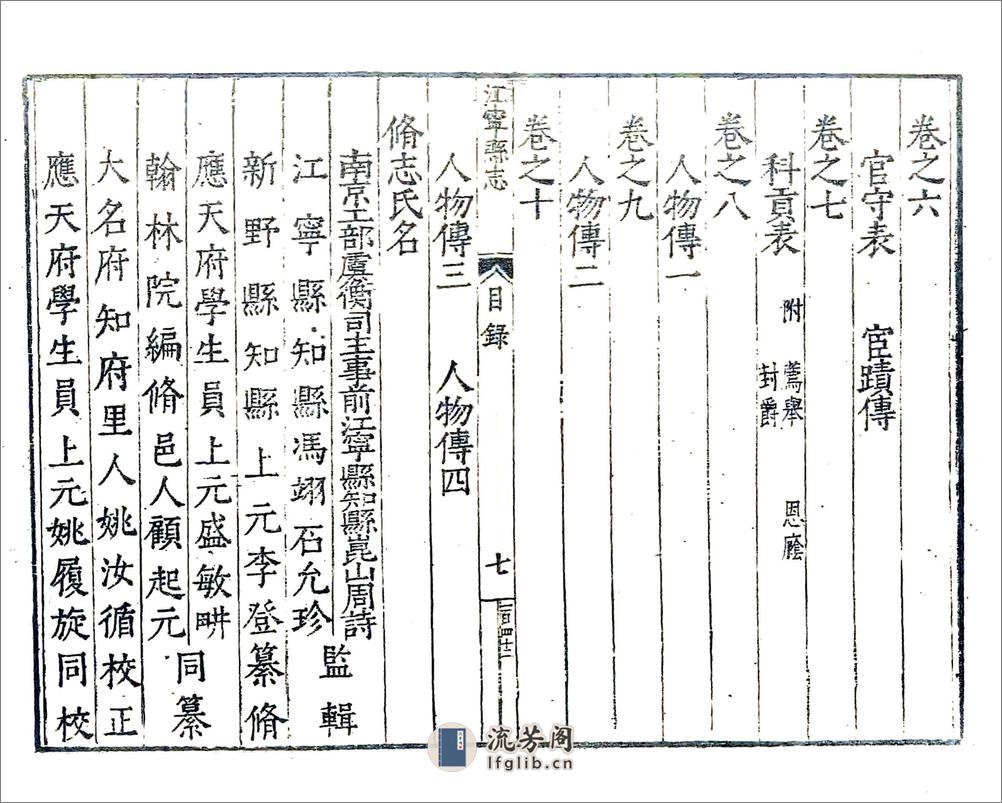 卷之六
官守表 宦蹟傳
卷之七
科貢表 附 薦舉 封爵 恩廕
卷之八
人物傳一
卷之九
人物傳二
卷之十
江寧縣志 目錄 七
人物傳三 人物傳四
脩志氏名
南京工部虞衡司主事前江寧縣知縣崑山周詩
江寧縣知縣馮翊石允珍
監輯
新野縣知縣上元李登纂脩
應天府學生員上元盛敏畊
翰林院編脩邑人顧起元
同纂
大名府知府里人姚汝循校正
應天府學生員上元姚履旋同校
流芳阁
lfglib.cn